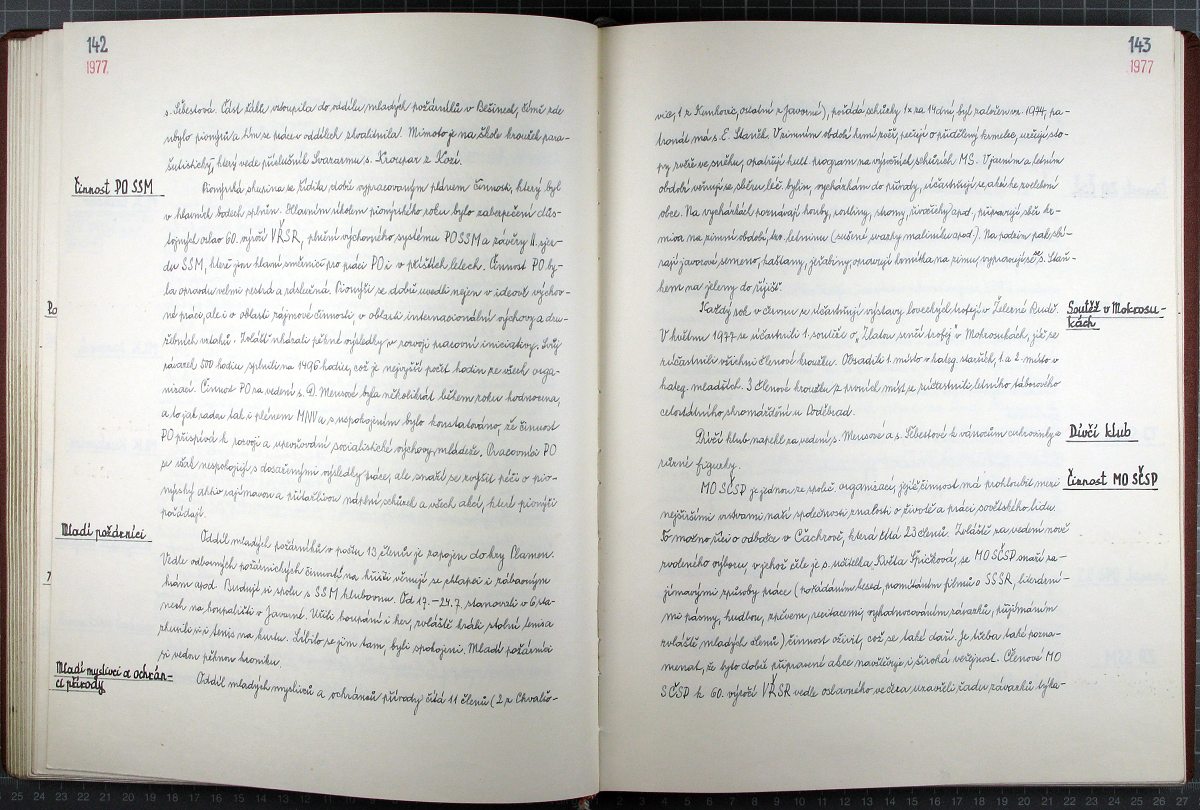 142
1977
s. Šebestová. Část žáků vstoupila do oddílu mladých požárníků vBěšinech, čímž zde
ubylo pionýrů a tím se práce v oddílech zkvalitnila. Mimoto je na škole kroužek para-
šutistický, který vede příslušník Svazarmu s. Kroupar z Kozí.
Činnost PO SSM
Pionýrská skupina se řídila dobře vypracovaným plánem činnosti, který byl
v hlavních bodech splněn. Hlavním úkolem pionýrského roku bylo zabezpečení důs-
tojných oslav 60. výročí VŘSR, plnění výchovného systému PO SSM a závěry II. sjez-
du SSM, které jsou hlavní směrnicí pro práci PO i v příštích letech. Činnost PO by-
la opravdu velmi pestrá a záslužná. Pionýři se dobře uvedli nejen v ideově výchov-
né práci, ale i v oblasti zájmové činnosti, v oblasti internacionální výchovy a dru-
žebních vztahů. Zvlášť ukázali pěkné výsledky v rozvoji pracovní iniciativy. Svůj
závazek 500 hodin splnili na 1496 hodin, což je nejvyšší počet hodin ze všech orga-
nizací. Činnost PO za vedení s. D. Merusové byla několikrát během roku hodnocena,
a to jak radou tak i plénem MNV a s uspokojením bylo konstatováno, že činnost
PO přispívá k rozvoji a upevňování socialistické výchovy mládeže. Pracovníci PO
se však nespokojují s dosaženými výsledky práce, ale snaží se zvýšit péči o pio-
nýrský aktiv zajímavou a přitažlivou náplní schůzek a všech akcí, které pionýři
pořádají.
Mladí požárníci
Oddíl mladých požárníků v počtu 13 členů je zapojen do hry Plamen.
Vedle odborných požárnických činností na hřišti věnují se chlapci i zábavným
hrám apod. Budují si spolu s SSM klubovnu. Od 17.–24.7. stanovali v 6 sta-
nech na koupališti v Javorné. Užili koupání i her, zvláště hráli stolní tenis a
zkusili si i tenis na kurtu. Líbilo se jim tam, byli spokojeni. Mladí požárníci
si vedou pěknou kroniku.
Mladí myslivci a ochrán-
ci přírody
Oddíl mladých myslivců a ochránců přírody čítá 11 členů (2 z Chvalšo-
143
1977
vic, 1 z Kunkovic, ostatní z Javorné), pořádá schůzky 1x za 14 dní, byl založen v r. 1974, pa-
tronát má s. E. Staněk. V zimním období krmí zvěř, pečují o přidělený krmelec, určují sto-
py zvěře ve sněhu, opatřují kult. program na výročních schůzích MS. V jarním a letním
období věnují se sběru léč. bylin, vycházkám do přírody, účastňují se akcí ke zvelebení
obce. Na vycházkách poznávají houby, rostliny, stromy, živočichy apod., připravují sběr kr-
miva na zimní období, tzv. letninu (sušené svazky maliníku apod.). Na podzim pak sbí-
rají javorové semeno, kaštany, jeřabiny, opravují krmítka na zimu, vypravují se se s. Staň-
kem na jeleny do říjiště.
Soutěž v Mokrosu-
kách
Každý rok v červnu se zúčastňují výstavy loveckých trofejí v Železné Rudě.
V květnu 1977 se účastnili 1. soutěže o „Zlatou srnčí trofej“ v Mokrosukách, jíž se
zúčastnili všichni členové kroužku. Obsadili 1. místo v kateg. starších, 1 a 2. místo v
kateg. mladších. 3 členové kroužku z prvních míst se zúčastnili letního táborového
celostátního shromáždění u Poděbrad.
Dívčí klub
Dívčí klub napekl za vedení s. Merusové a s. Šebestové k vánocům cukrovinky a
různé figurky.
Činnost MO SČSP
MO SČSP je jednou ze společ. organizací, jejíž činnost má prohloubit mezi
nejširšími vrstvami naší společnosti znalosti o životě a práci sovětského lidu.
To možno říci o odbočce v Čachrově, která čítá 23 členů. Zvláště za vedení nově
zvoleného výboru, v jehož čele je s. učitelka Květa Špičková, se MO SČSP snaží za-
jímavými způsoby práce (pořádáním besed, promítáním filmů o SSSR, literární-
mi pásmy, hudbou, zpěvem, recitacemi, vyhodnocováním závazků, přijímáním
zvláště mladých členů) činnost oživit, což se také daří. Je třeba také pozna-
menat, že tyto dobře připravené akce navštěvuje i široká veřejnost. Členové MO
SČSP k 60. výročí VŘSR vedle oslavného večera uzavřeli řadu závazků týka-